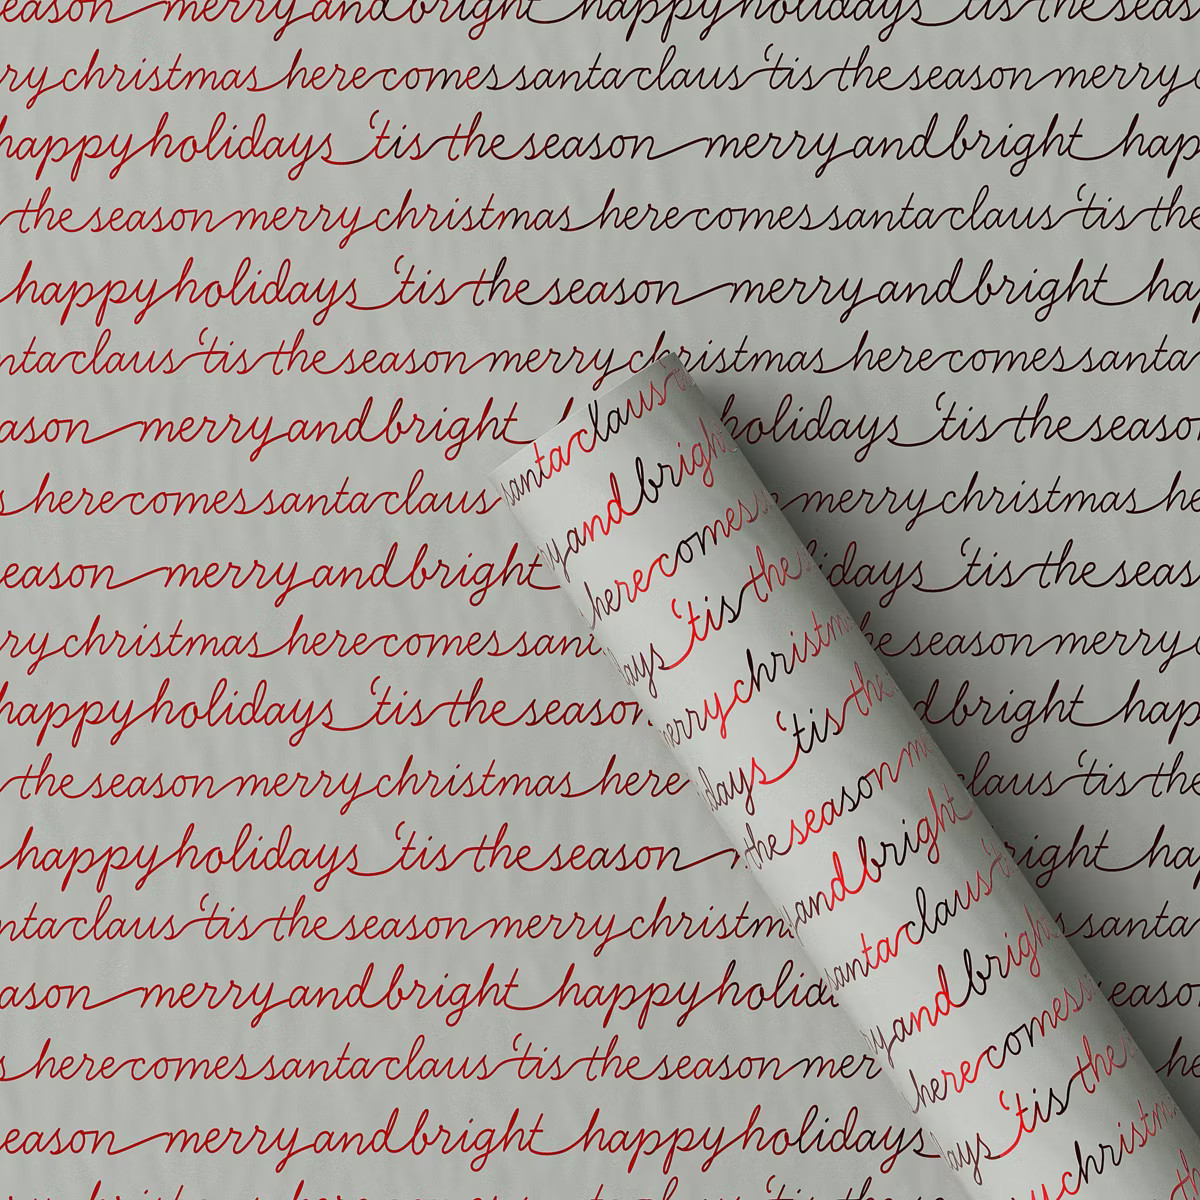 eason merry and bright happy holidays 'tis the seas
ry christmas here comes santa claus 'tis the season merry c
happy holidays 'tis the season merry and bright hap
the season merry christmas here comes santa claus 'tis the
happy holidays 'tis the season merry and bright ha
nta claus 'tis the season merry christmas here comes santa
ason merry and bright holidays 'tis the seaso
s here comes santa claus merry christmas he
eason merry and bright idays 'tis the seas
ry christmas here comes sant he season merry c
happy holidays 'tis the season dbright hap
the season merry christmas here claus 'tis the
happy holidays 'tis the season right ha
nta claus 'tis the season merry christm santa
ason merry and bright happy holid easo
s here comes santa claus 'tis the season mer he
eason merry and bright happy holidays
santa claus
y and brigh
here comes s
days 'tis the
merry christm
days 'tis the
the season m
y and bright
santa claus
y and brigh
here comes
days 'tis the
y christm